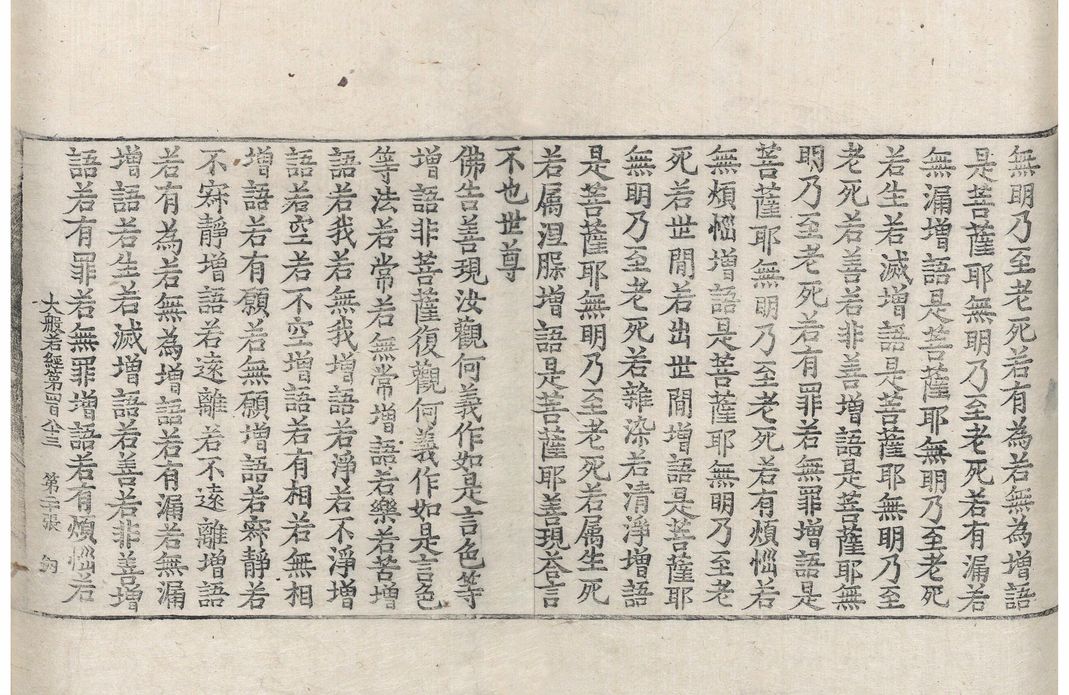 無明乃至老死若有為若無為增語
是菩薩耶無明乃至老死若有漏若
無漏增語是菩薩耶無明乃至老死
若生若滅增語是菩薩耶無明乃至
老死若善若非善增語是菩薩耶無
明乃至老死若有罪若無罪增語是
菩薩耶無明乃至老死若有煩惱若
無煩惱增語是菩薩耶無明乃至老
死若世間若出世間增語是菩薩耶
無明乃至老死若雜染若清淨增語
是菩薩耶無明乃至老死若属生死
若属涅槃增語是菩薩耶善現荅言
不也世尊
佛告善現汝觀何義作如是言色等
增語非菩薩復觀何義作如是言色
等法若常若無常增語若樂若苦增
語若我若無我增語若淨若不淨增
語若空若不空增語若有相若無相
增語若有願若無願增語若寂靜若
不寂靜增語若遠離若不遠離增語
若有為若無為增語若有漏若無漏
增語若生若滅增語若善若非善增
語若有罪若無罪增語若有煩惱若
大般若經第四百八三 第二十張